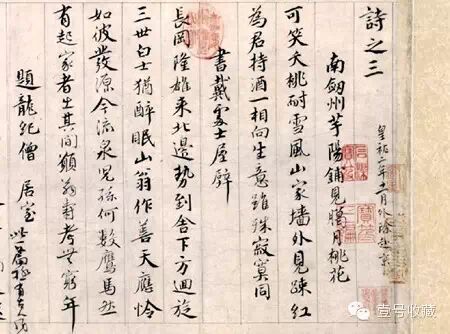 詩之三
皇祐二年十一月外除赴京
南劔州芋陽鋪見臘月桃花
可笑夭桃耐雪風山家墻外見疎紅
為君持酒一相向生意雖殊寂寞同
書戴處士屋壁
長岡隆雄来北邊勢到舍下方迴旋
三世白士猶醉眠山翁作善天應憐
如彼發源今流泉兒孫何數鷹馬然
有起家者出其間願翁壽考無窮年
題龍紀僧居室
此一篇極有古人
壹号收藏